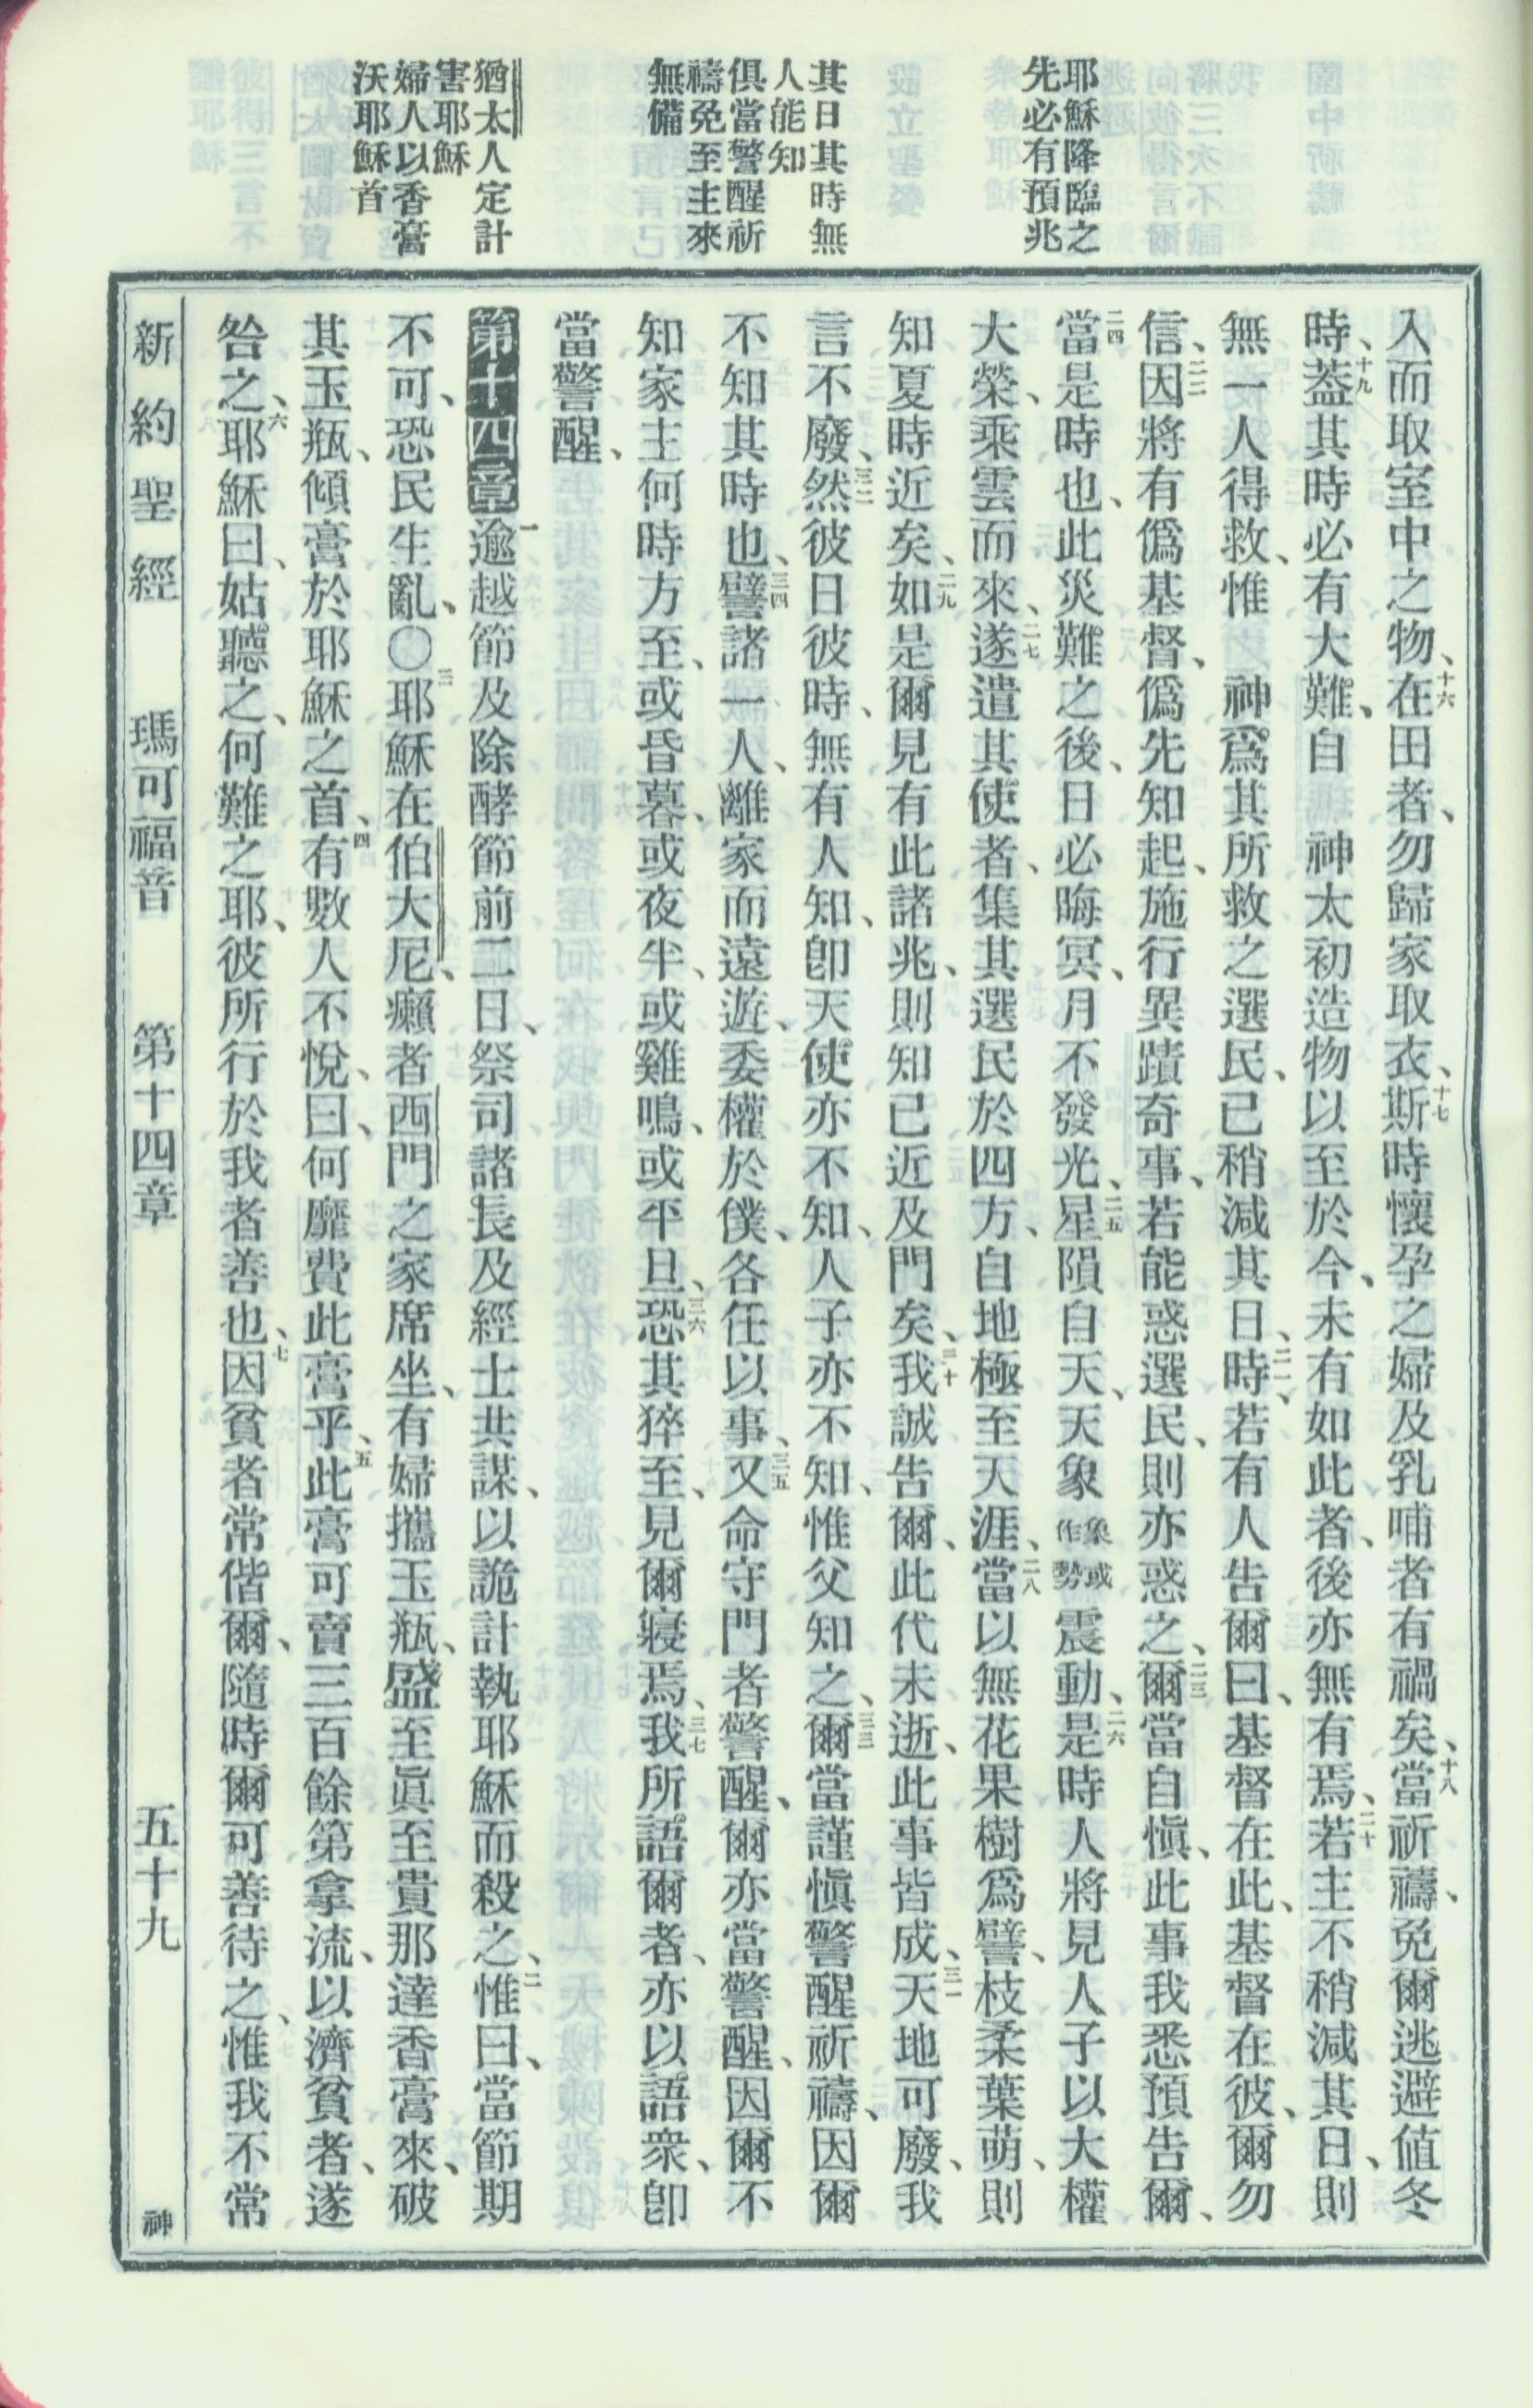 耶穌降臨之
先必有預兆
其日其時無
人能知
俱當警醒祈
禱免至主來
無備
猶太人定計
害耶穌
婦人以香膏
沃耶穌首
入而取室中之物、十六在田者、勿歸家取衣、十七斯時懷孕之婦及乳哺者有禍矣、十八當祈禱、免爾逃避值冬
時、十九蓋其時必有大難、自 神太初造物以至於今、未有如此者、後亦無有焉、二十若主不稍減其日、則
無一人得救、惟 神爲其所救之選民、已稍減其日、二一時、若有人告爾曰、基督在此、基督在彼、爾勿
信、二二因將有僞基督、僞先知起、施行異蹟奇事、若能惑選民、則亦惑之、二三爾當自愼、此事我悉預告爾、
二四當是時也、此災難之後、日必晦冥、月不發光、二五星隕自天、天象象或作勢震動、二六是時人將見人子以大權
大榮、乘雲而來、二七遂遣其使者、集其選民於四方、自地極至天涯、二八當以無花果樹爲譬、枝柔葉萌、則
知夏時近矣、二九如是爾見有此諸兆、則知已近及門矣、三十我誠告爾、此代未逝、此事皆成、三一天地可廢、我
言不廢、三二然彼日彼時、無有人知、卽天使亦不知、人子亦不知、惟父知之、三三爾當謹愼警醒祈禱、因爾
不知其時也、三四譬諸一人、離家而遠遊、委權於僕、各任以事、三五又命守門者警醒、爾亦當警醒、因爾不
知家主何時方至、或昏暮、或夜半、或雞鳴、或平旦、三六恐其猝至、見爾寢焉、三七我所語爾者、亦以語衆、卽
當警醒、
第十四章一逾越節及除酵節前二日、祭司諸長及經士共謀、以詭計執耶穌而殺之、二惟曰、當節期
不可、恐民生亂、〇三耶穌在伯大尼、癩者西門之家席坐、有婦攜玉瓶、盛至眞至貴那達香膏來、破
其玉瓶、傾膏於耶穌之首、四有數人不悅、曰、何靡費此膏乎、五此膏可賣三百餘第拿流、以濟貧者、遂
咎之、六耶穌曰、姑聽之、何難之耶、彼所行於我者善也、七因貧者常偕爾、隨時爾可善待之、惟我不常
新約聖經 瑪可福音 第十四章 五十九 神